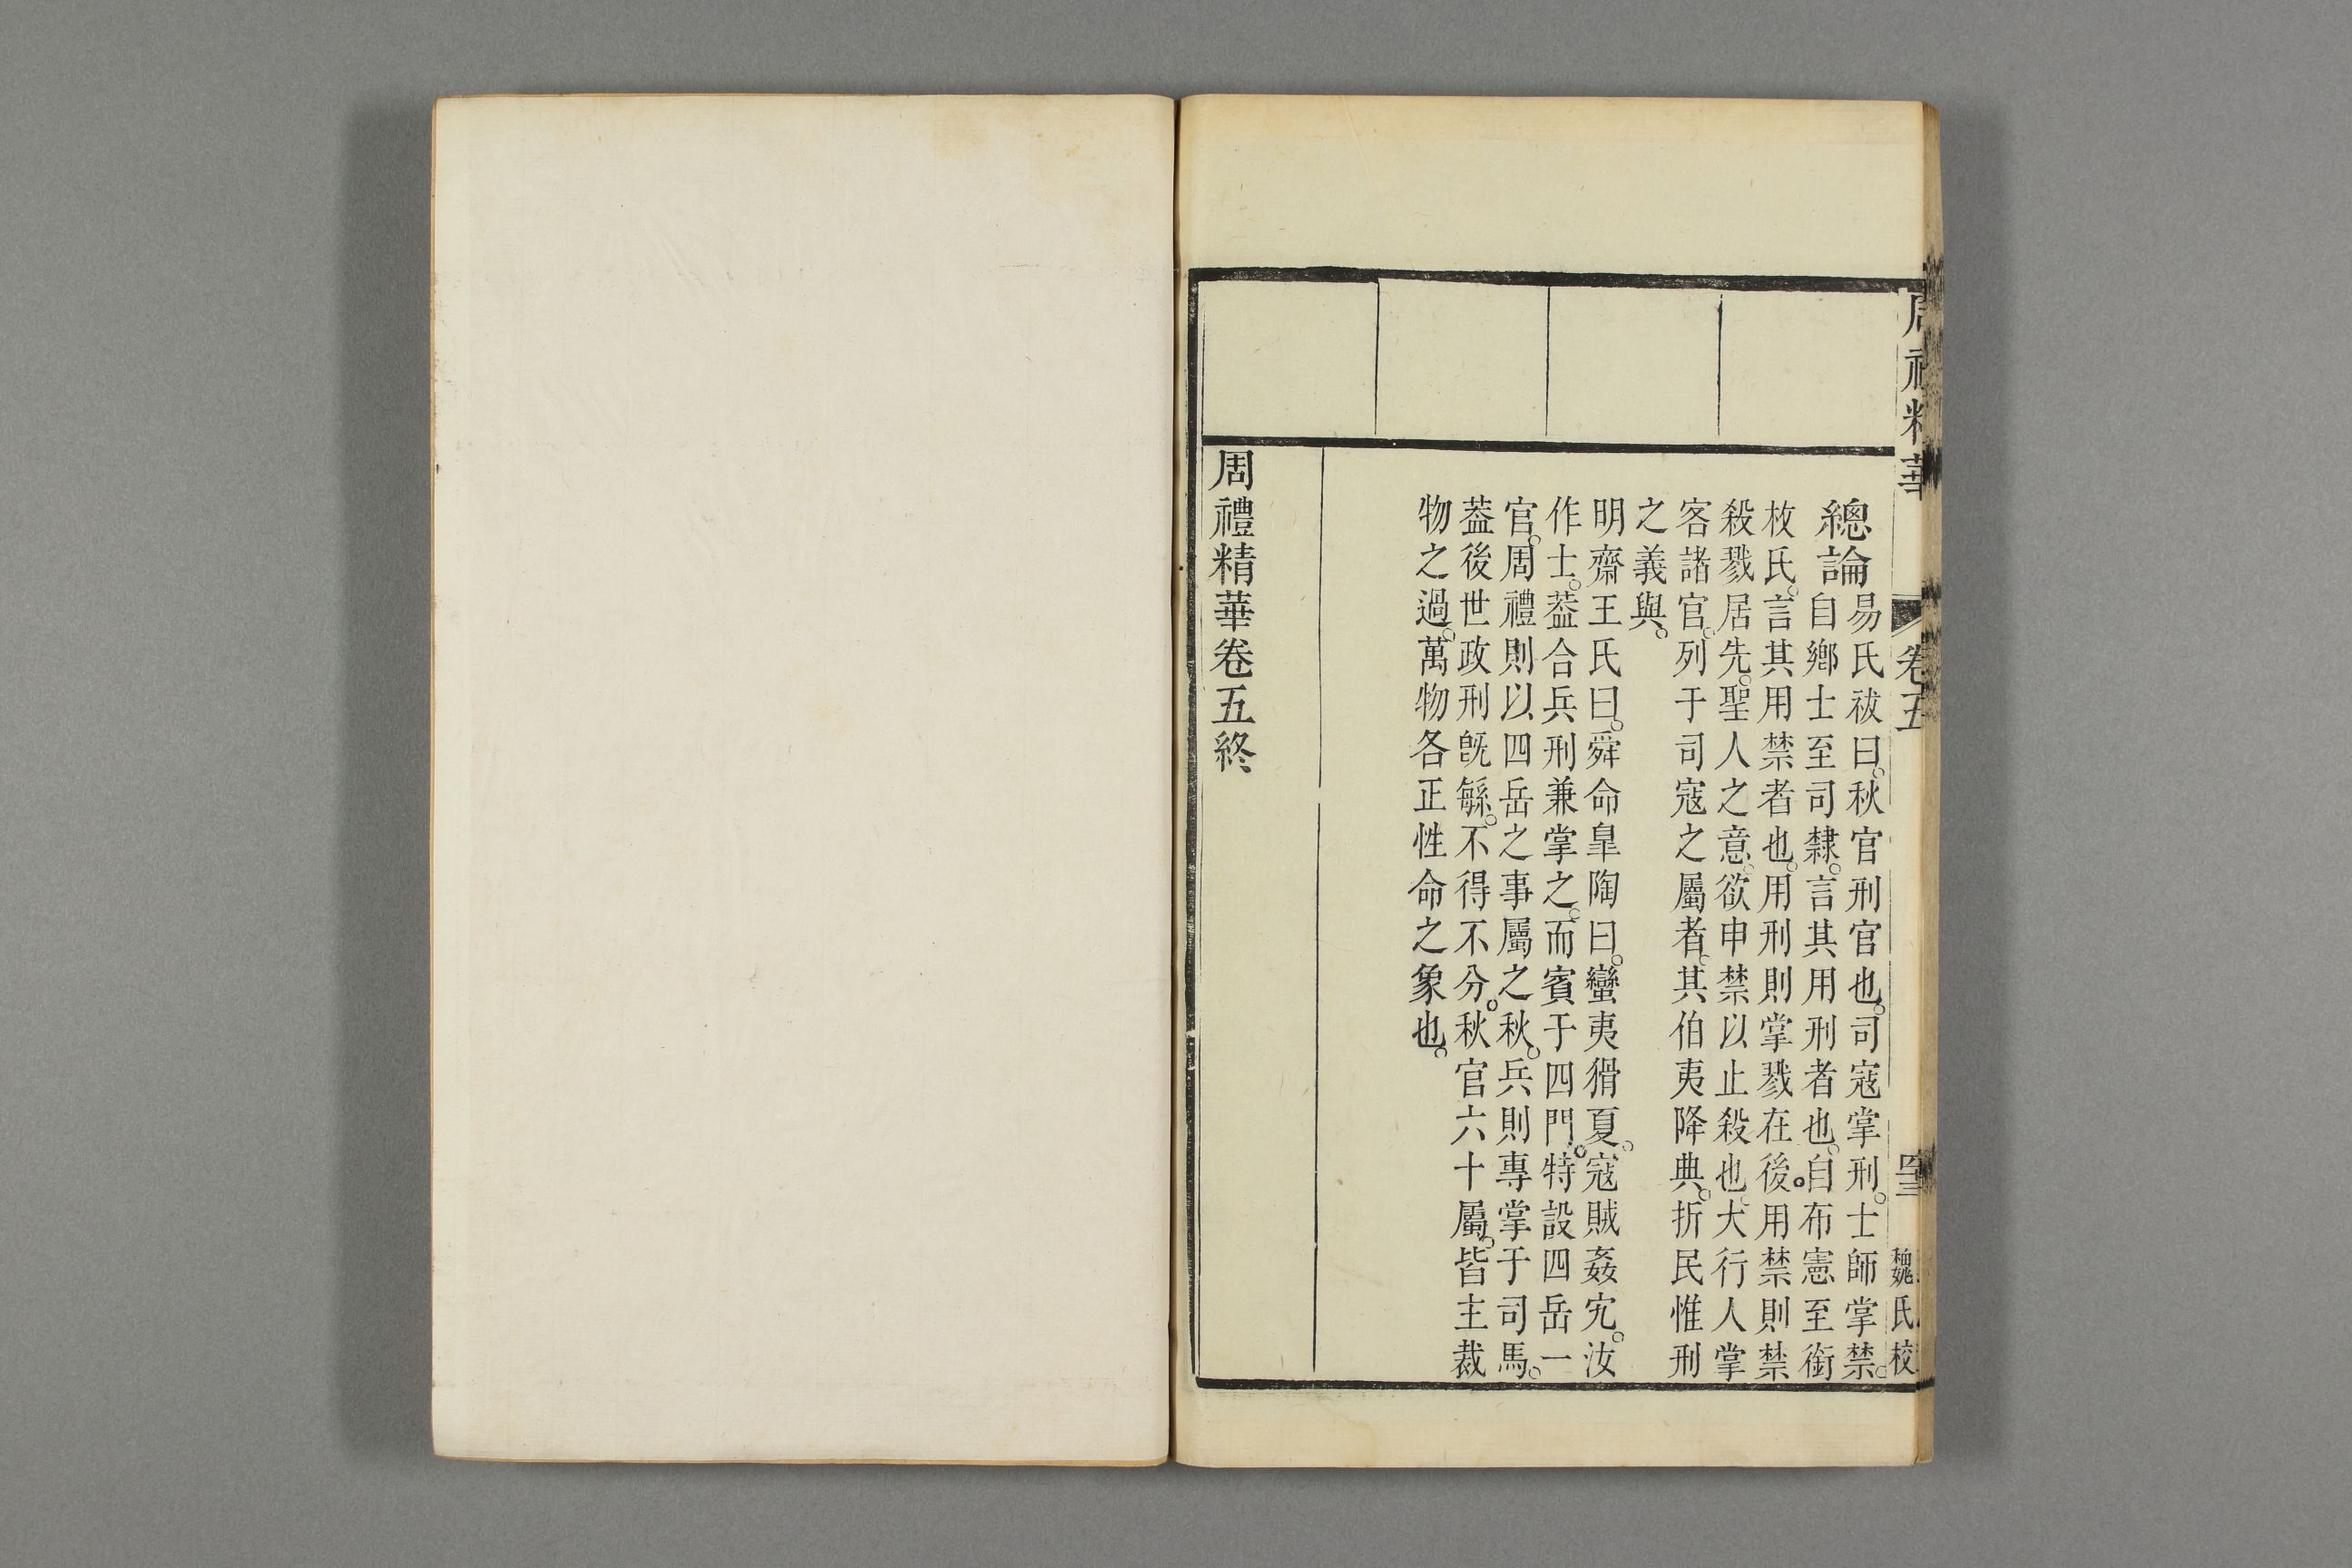 周禮精華
卷五
魏氏校
總論
易氏祓曰。秋官刑官也。司寇掌刑。士師掌禁。
自鄉士至司隸。言其用刑者也。自布憲至銜
枚氏。言其用禁者也。用刑則掌戮在後。用禁則禁
殺戮居先。聖人之意。欲申禁以止殺也。大行人掌
客諸官。列于司寇之屬者。其伯夷降典。折民惟刑
之義與。
明齋王氏曰。舜命皐陶曰。蠻夷猾夏。寇賊姦宄。汝
作士。葢合兵刑兼掌之。而賓于四門。特設四岳一
官。周禮則以四岳之事屬之秋。兵則專掌于司馬。
葢後世政刑旣緐。不得不分。秋官六十屬。皆主裁
物之過。萬物各正性命之象也。
周禮精華卷五終